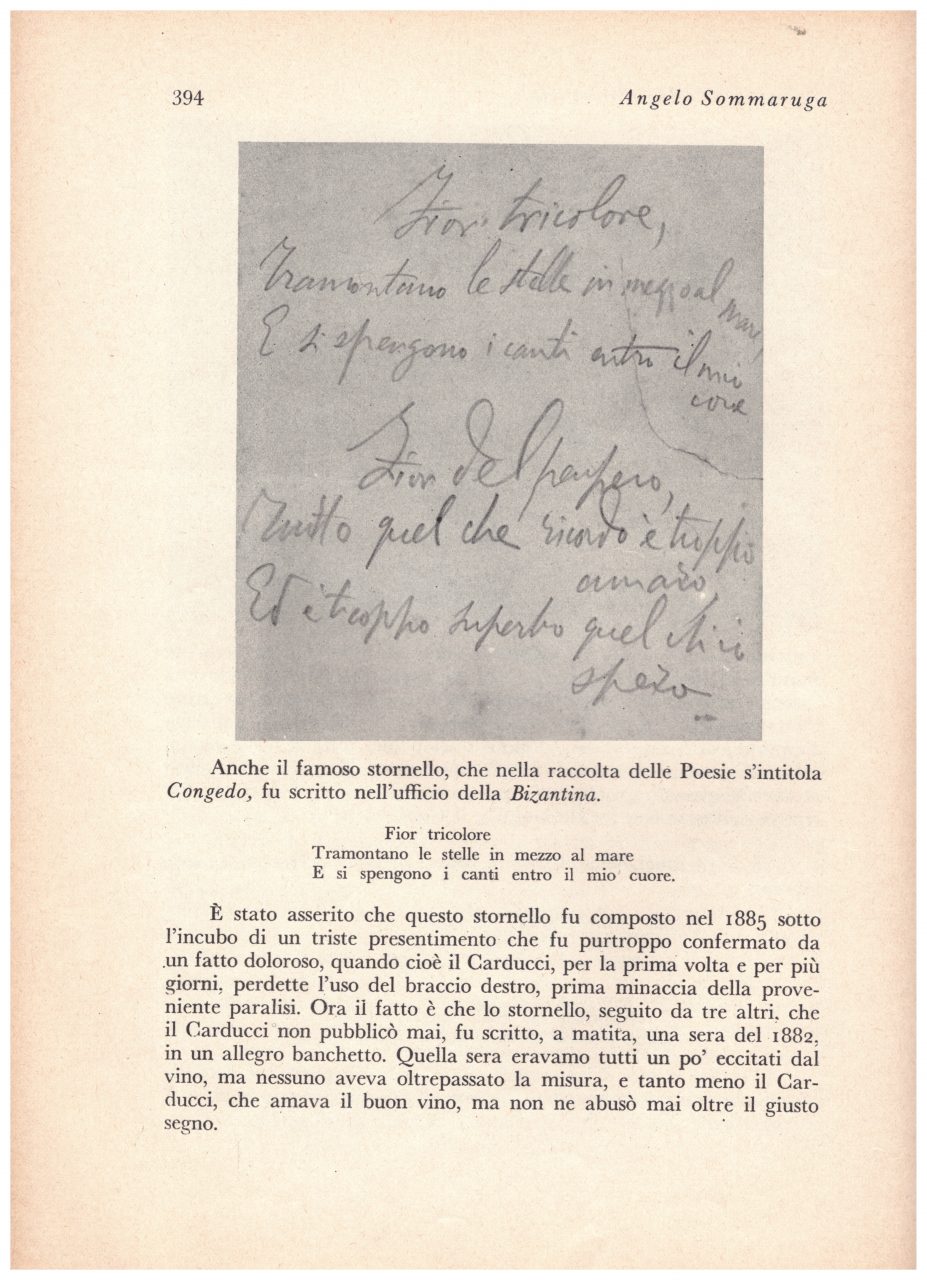 394
Angelo Sommaruga
Fior tricolore,
Tramontano le stelle in mezzo al
mare,
E si spengono i canti entro il mio
core
Fior del
Tutto quel che ricordo è troppo
amaro,
Ed è troppo superbo quel ch'io
spero
Anche il famoso stornello, che nella raccolta delle Poesie s'intitola
Congedo, fu scritto nell'ufficio della Bizantina.
Fior tricolore
Tramontano le stelle in mezzo al mare
E si spengono i canti entro il mio cuore.
È stato asserito che questo stornello fu composto nel 1885 sotto
l'incubo di un triste presentimento che fu purtroppo confermato da
un fatto doloroso, quando cioè il Carducci, per la prima volta e per più
giorni, perdette l'uso del braccio destro, prima minaccia della prove-
niente paralisi. Ora il fatto è che lo stornello, seguito da tre altri, che
il Carducci non pubblicò mai, fu scritto, a matita, una sera del 1882,
in un allegro banchetto. Quella sera eravamo tutti un po' eccitati dal
vino, ma nessuno aveva oltrepassato la misura, e tanto meno il Car-
ducci, che amava il buon vino, ma non ne abusò mai oltre il giusto
segno.